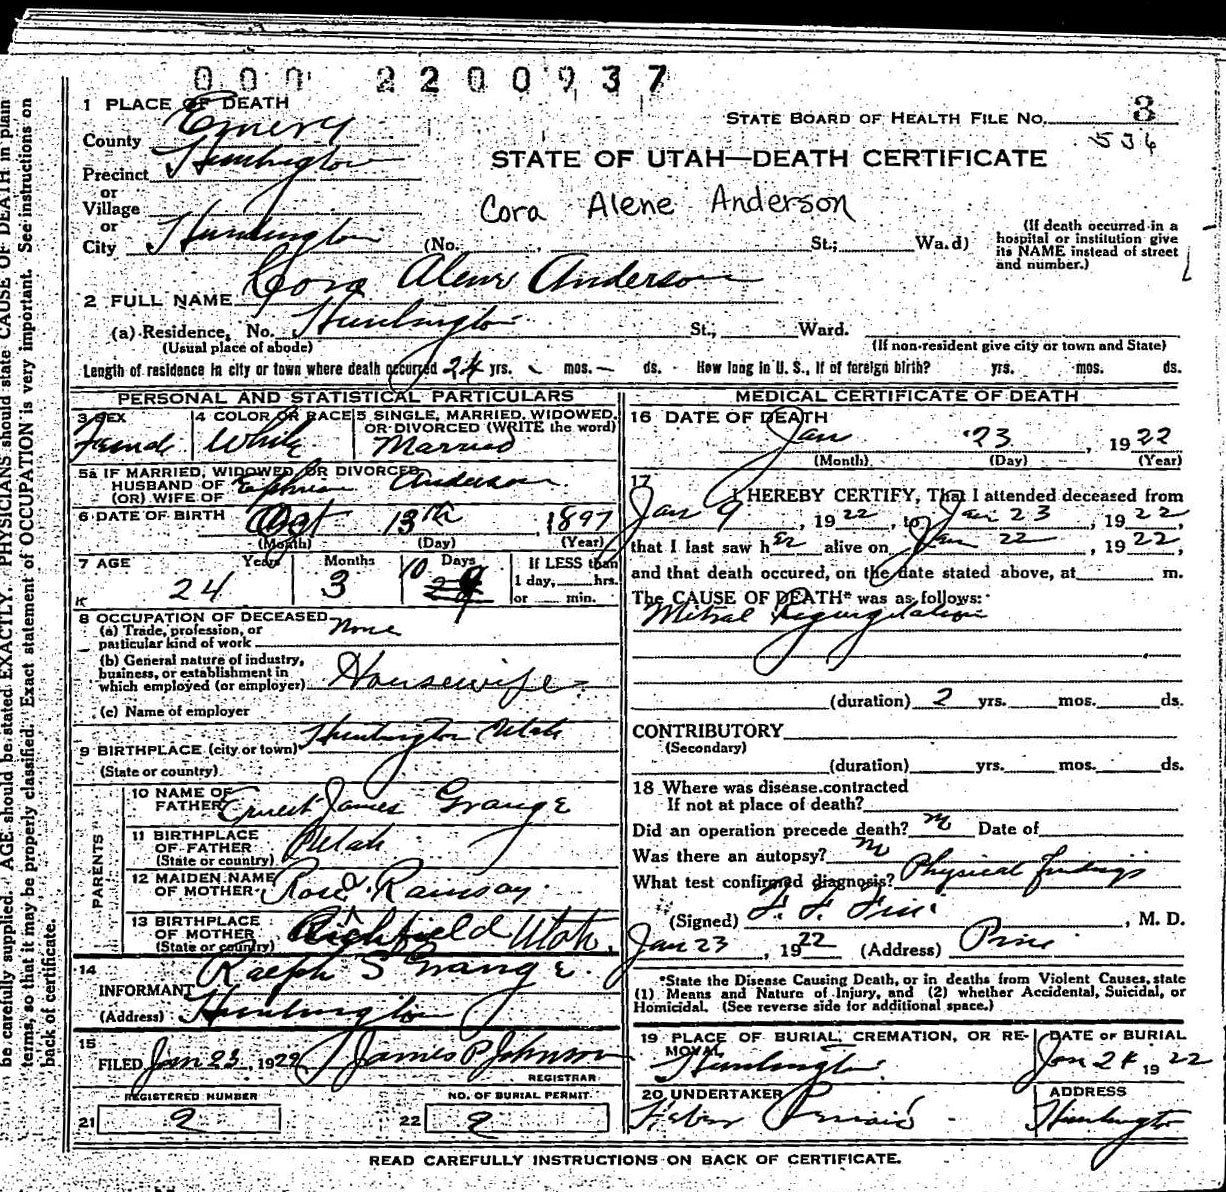 000 2200937
1 PLACE OF DEATH
County Emery
STATE BOARD OF HEALTH FILE No. 3
536
Precinct Huntington
STATE OF UTAH—DEATH CERTIFICATE
or
Village
Cora Alene Anderson
or
City Huntington (No. , St.; Wa.d)
(If death occurred in a hospital or institution give its NAME instead of street and number.)
2 FULL NAME Cora Alene Anderson
(a) Residence, No. Huntington St., Ward.
(Usual place of abode) (If non-resident give city or town and State)
Length of residence in city or town where death occurred 24 yrs. - mos. - ds. How long in U. S., if of foreign birth? yrs. mos. ds.
PERSONAL AND STATISTICAL PARTICULARS
3 SEX 4 COLOR OR RACE 5 SINGLE, MARRIED, WIDOWED,
OR DIVORCED (WRITE the word)
Female White Married
5a IF MARRIED, WIDOWED, OR DIVORCED
HUSBAND OF
(OR) WIFE OF Ephriam Anderson
6 DATE OF BIRTH Oct 13th, 1897
(Month) (Day) (Year)
7 AGE Years Months Days If LESS than
24 3 10 1 day, hrs.
or min.
K
8 OCCUPATION OF DECEASED
(a) Trade, profession, or
particular kind of work None
(b) General nature of industry,
business, or establishment in
which employed (or employer) Housewife
(c) Name of employer
9 BIRTHPLACE (city or town) Huntington Utah
(State or country)
PARENTS
10 NAME OF
FATHER Ernest James Grange
11 BIRTHPLACE
OF FATHER Utah
(State or country)
12 MAIDEN NAME
OF MOTHER Rose Ramsay
13 BIRTHPLACE
OF MOTHER Richfield Utah.
(State or country)
14
INFORMANT Ralph S Grange.
(Address) Huntington
15
FILED Jan 23, 1922 James P Johnson
REGISTRAR
REGISTERED NUMBER NO. OF BURIAL PERMIT
21 2 22 2
MEDICAL CERTIFICATE OF DEATH
16 DATE OF DEATH
Jan 23, 1922
(Month) (Day) (Year)
17
I HEREBY CERTIFY, That I attended deceased from
Jan 9, 1922, to Jan 23, 1922,
that I last saw her alive on Jan 22, 1922,
and that death occured, on the date stated above, at m.
The CAUSE OF DEATH* was as follows:
Mitral Regurgitation
(duration) 2 yrs. mos. ds.
CONTRIBUTORY
(Secondary)
(duration) yrs. mos. ds.
18 Where was disease contracted
If not at place of death?
Did an operation precede death? no Date of
Was there an autopsy? no
What test confirmed diagnosis? Physical findings
(Signed) , M. D.
Jan 23, 1922 (Address)
*State the Disease Causing Death, or in deaths from Violent Causes, state
(1) Means and Nature of Injury, and (2) whether Accidental, Suicidal, or
Homicidal. (See reverse side for additional space.)
19 PLACE OF BURIAL, CREMATION, OR RE- DATE OF BURIAL
MOVAL
Huntington Jan 24 1922
20 UNDERTAKER ADDRESS
Huntington
READ CAREFULLY INSTRUCTIONS ON BACK OF CERTIFICATE.
be carefully supplied. AGE should be stated EXACTLY. PHYSICIANS should state CAUSE OF DEATH in plain
terms, so that it may be properly classified. Exact statement of OCCUPATION is very important. See instructions on
back of certificate.